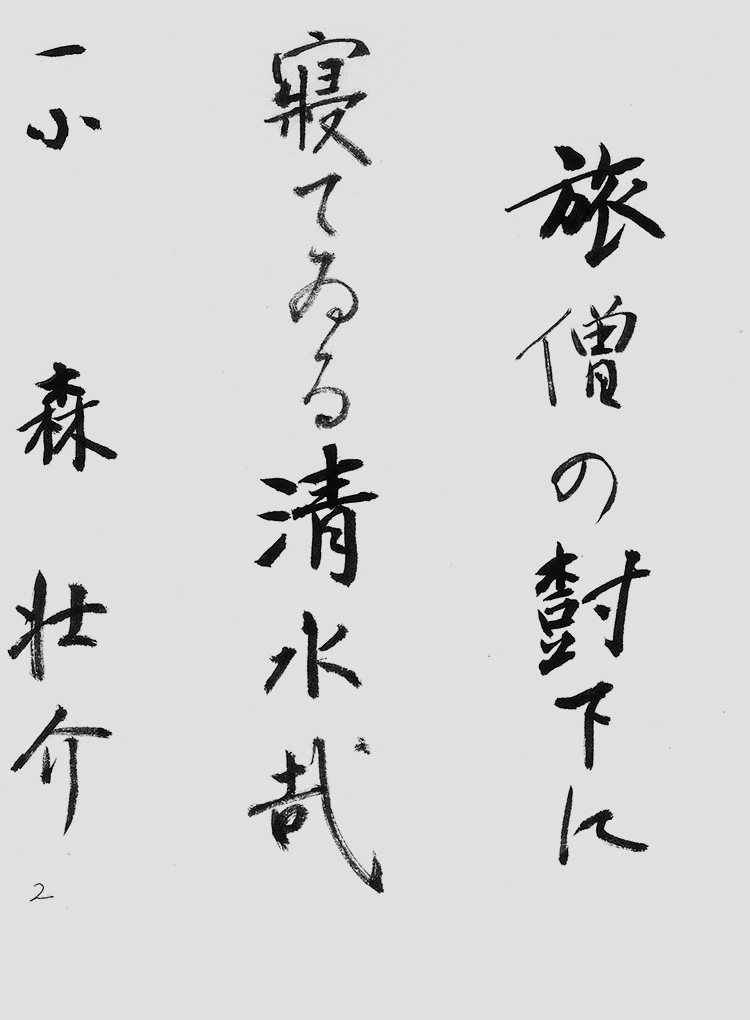 旅僧の樹下に
寝てゐる清水哉
一小 森 壮介
2